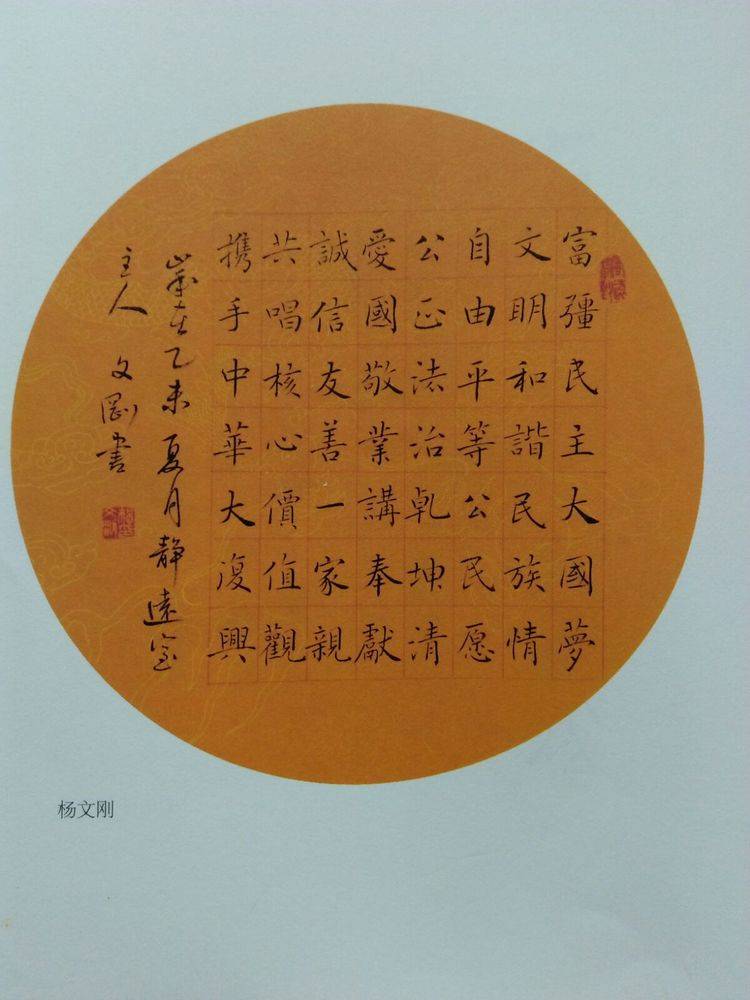 富彊民主大國夢
文明和諧民族情
自由平等公民愿
公正法治乹坤清
愛國敬業講奉獻
誠信友善一家親
共唱核心價值觀
携手中華大復興
歲在乙未夏月静遠室
主人文剛書
杨文刚